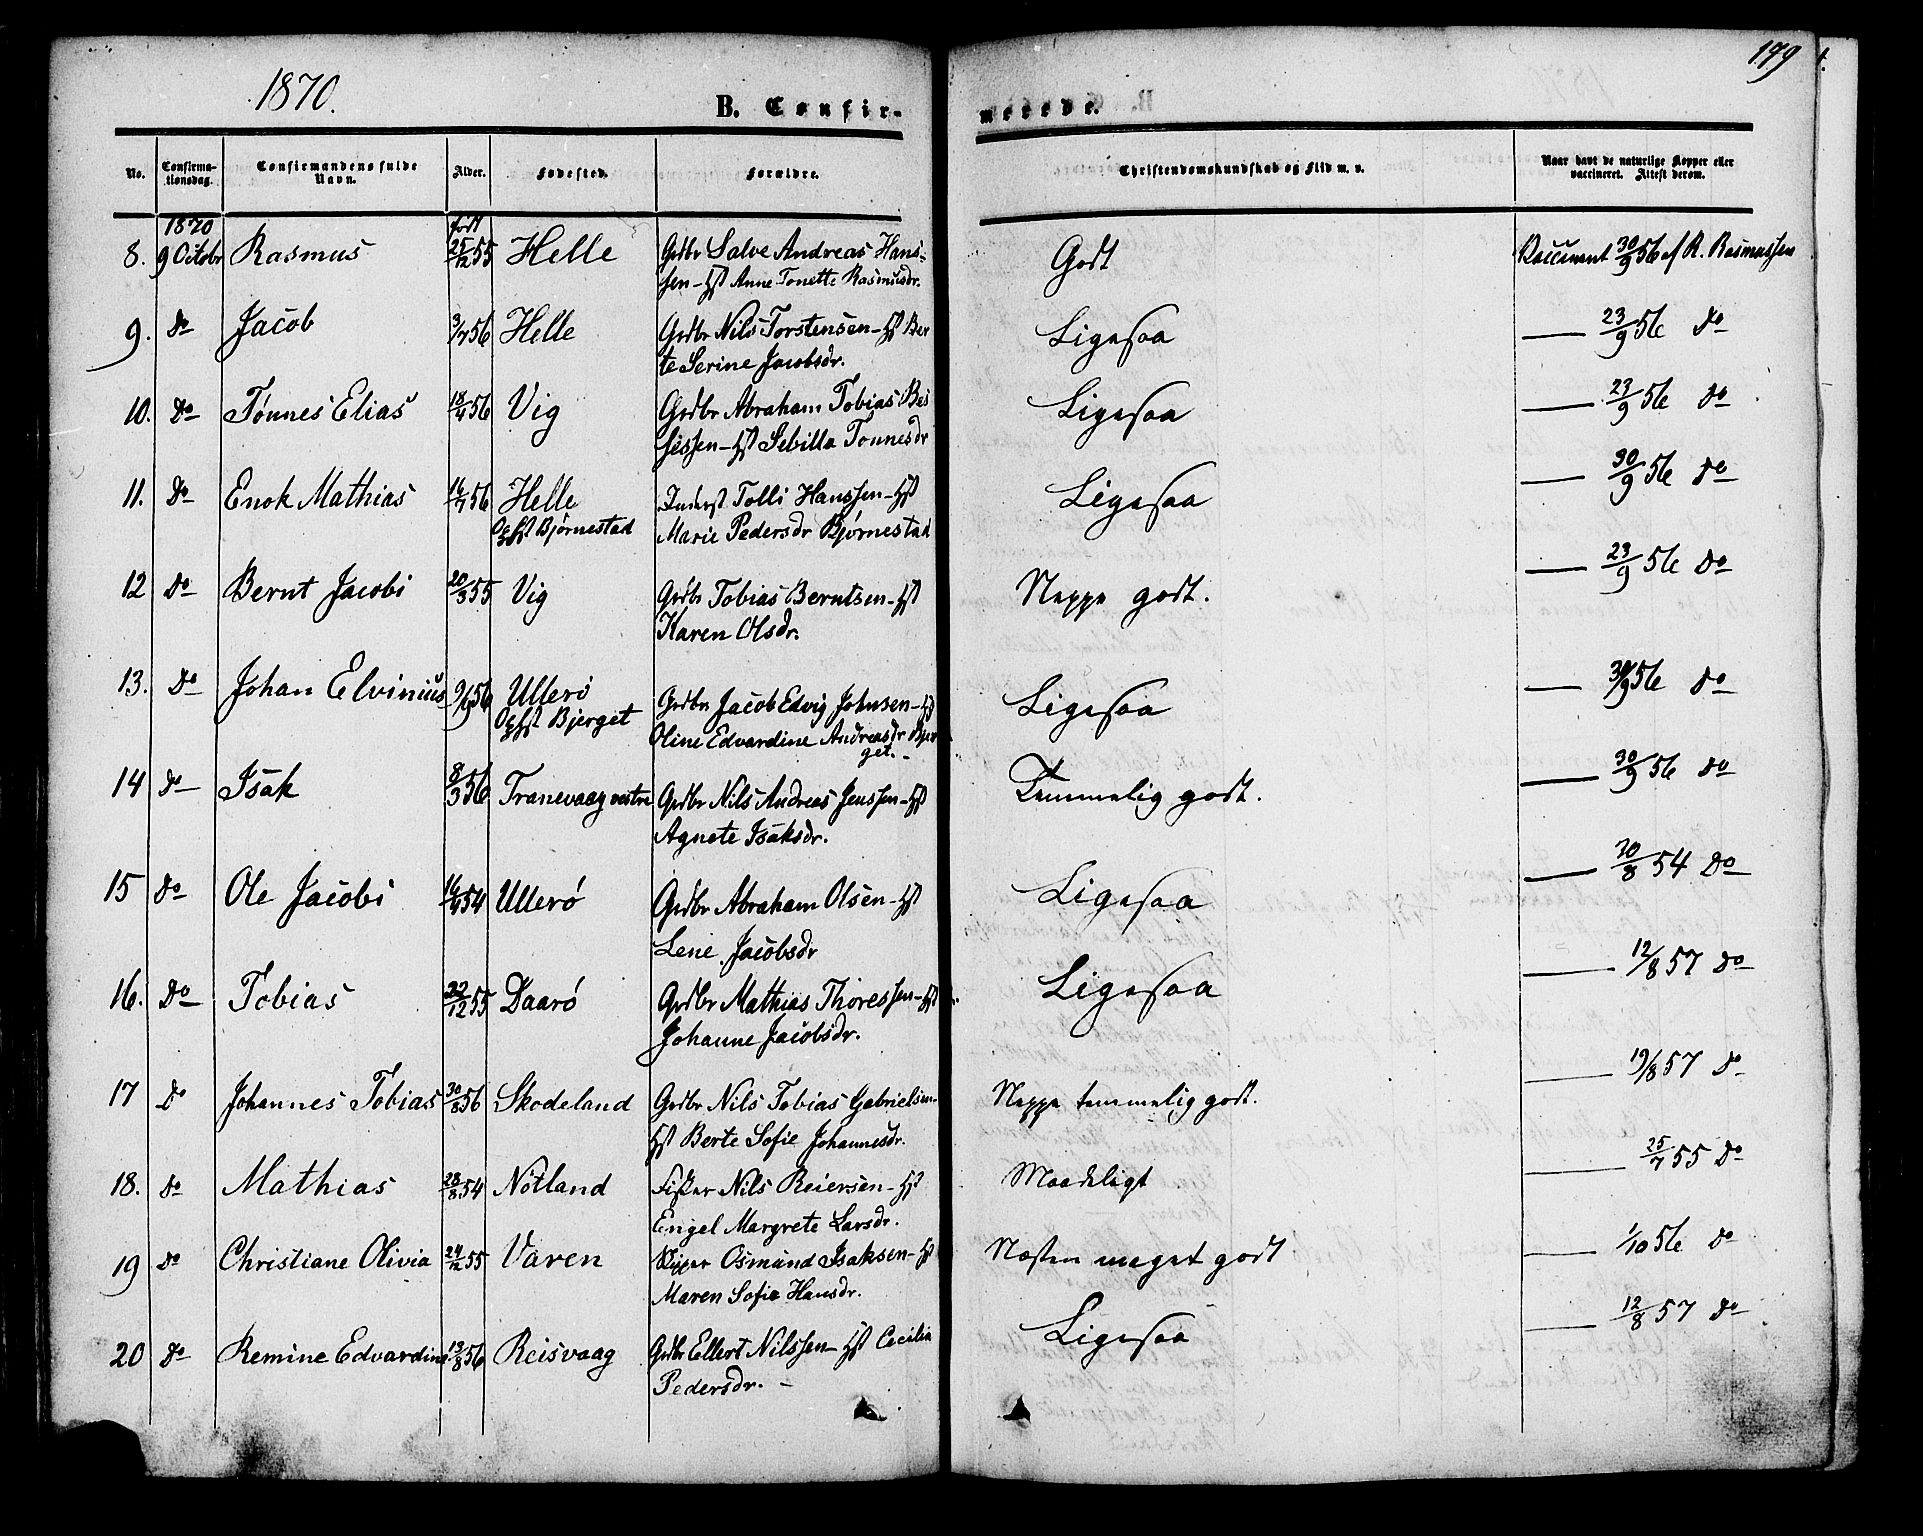 1870.
179
B. Confir-
merede.
No.
Confirma-
tionsdag.
Confirmandens fulde
Navn.
Alder.
Fødested.
Forældre.
Christendomskundskab og Flid m. v.
Naar havt de naturlige Kopper eller
vaccineret. Attest derom.
1870
født
8. 9 Octobr Rasmus 25/12 55 Helle Grdbr Salve Andreas Hans-
sen - Hst Anne Tonette Rasmusdr.
Godt
Vaccineret 30/9 56 af R. Rasmussen
9. Do Jacob 3/7 56 Helle Grdbr Nils Torstensen - Hst Ber
te Serine Jacobsdr.
Ligesaa
— 23/9 56 Do
10. Do Tønnes Elias 18/4 56 Vig Grdbr Abraham Tobias Bes
sessen - Hst Sebilla Tonnesdr
Ligesaa
— 23/9 56 Do
11. Do Enok Mathias 16/7 56 Helle Inderst Tolli Hanssen - Hst
Opfst Bjørnestad Marie Pedersdr Bjørnestad
Ligesaa
— 30/9 56 Do
12 Do Bernt Jacobi 20/3 55 Vig Grdbr Tobias Berntsen - Hst
Karen Olsdr.
Neppe godt.
— 23/9 56 Do
13. Do Johan Elvinius 9/6 56 Ullerø Grdbr Jacob Edvig Johnsen - Hst
Opfst Bjerget Oline Edvardine Andreasdr Bjer
get.-
Ligesaa
— 30/9 56 Do
14 Do Isak 8/3 56 Tranevaag vestre Grdbr Nils Andreas Jenssen - Hst
Agnete Isaksdr.
Temmelig godt.
— 30/9 56 Do
15 Do Ole Jacobi 16/4 54 Ullerø Grdbr Abraham Olsen - Hst
Lene Jacobsdr
Ligesaa
— 20/8 54 Do
16. Do Tobias 22/12 55 Daarø Grdbr Mathias Thoressen - Hst
Johanne Jacobsdr.
Ligesaa
— 12/8 57 Do
17 Do Johannes Tobias 30/8 56 Skodeland Grdbr Nils Tobias Gabrielsen -
Hst Berte Sofie Johannesdr.
Neppe temmelig godt.
— 19/8 57 Do
18. Do Mathias 28/8 54 Nötland Fisker Nils Reiersen - Hst
Engel Margrete Larsdr.
Maadeligt
— 25/7 55 Do
19 Do Christiane Olivia 24/12 55 Varen Skipper Osmund Isaksen - Hst
Maren Sofie Hansdr.
Næsten meget godt
— 1/10 56 Do
20 Do Remine Edvardine 13/8 56 Reisvaag Grdbr Ellert Nilssen - Hst Cecilia
Pedersdr. -
Ligesaa
— 12/8 57 Do